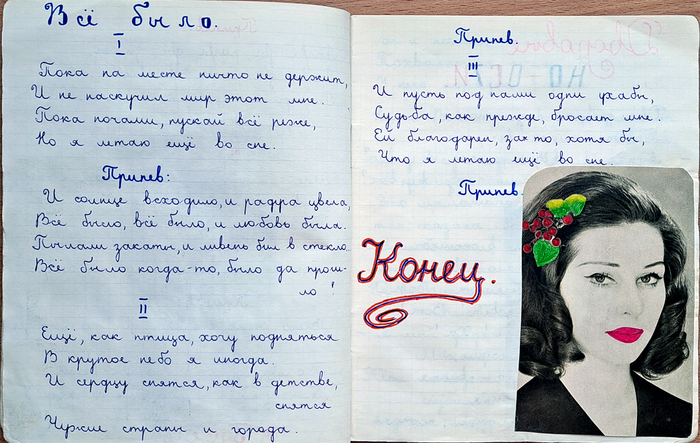 Всё было.
I
Пока на месте ничто не держит,
И не наскучил мир этот мне.
Пока ночами, пускай всё реже,
Но я летаю ещё во сне.
Припев:
И солнце всходило, и радуга цвела,
Всё было, всё было, и любовь была.
Пылали закаты, и ливень бил в стекло.
Всё было когда-то, было да прош-
ло!
II
Ещё, как птица, хочу подняться
В крутое небо я иногда.
И сердцу снятся, как в детстве,
снятся
Чужие страны и города.
Припев.
III
И пусть под нами одни ухабы,
Судьба, как прежде, бросает мне.
Ей благодарен, за то, хотя бы,
Что я летаю ещё во сне.
Припев.
Конец.